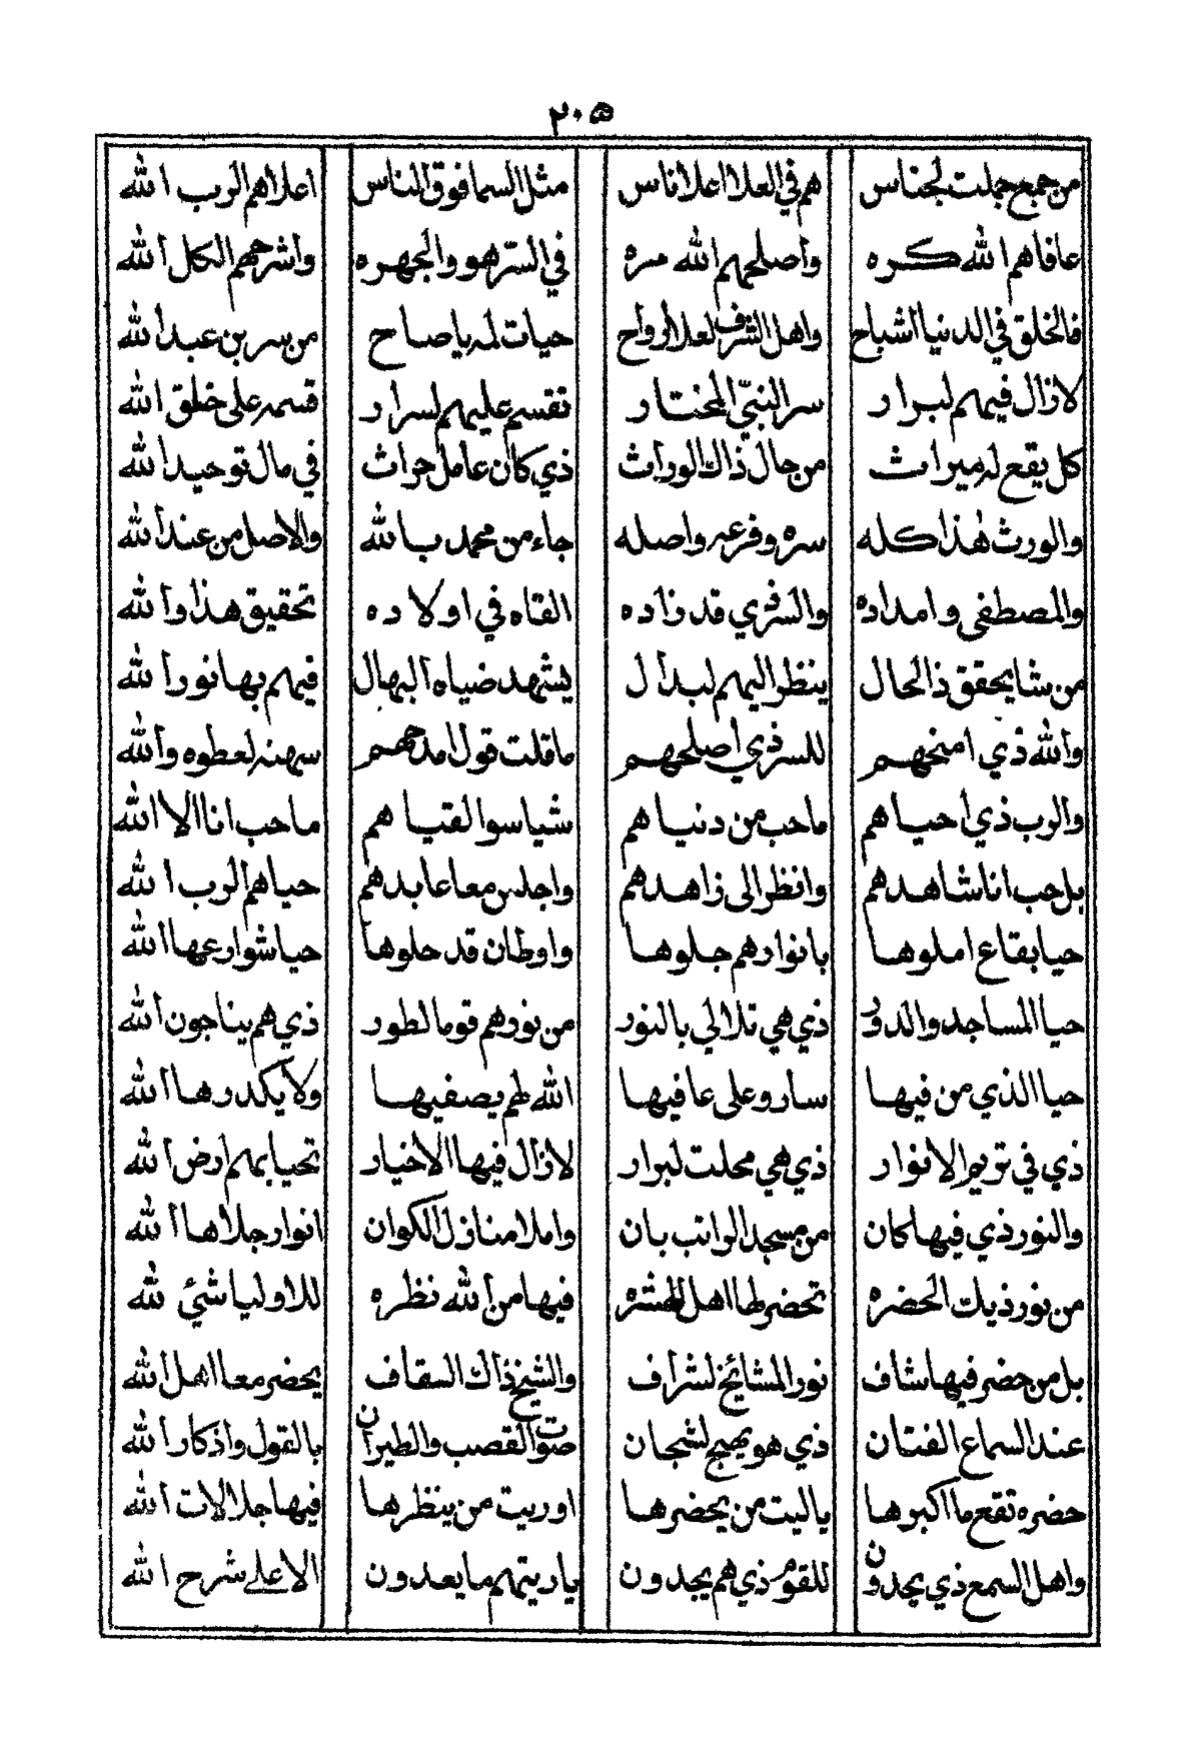 ٢٠٥
من جمع جملت لجناس هم في العلا اعلا ناس مثل السما فوق الناس اعلاهم الرب الله
عافاهم الله كره واصلحهم الله مره في السر هو والجهره واشرحهم الكل الله
فالخلق في الدنيا اشباح واهل الشرف لعلا ارواح حيات له يا صاح من سر بن عبد الله
لازال فيهم لبرار سر النبي المختار نقسم عليهم لسرار قسمه على خلق الله
كل يقع له ميراث من جال ذاك الوراث ذي كان عامل حراث في مال توحيد الله
والورث هذا كله سره وفرعه واصله جاء من محمد بالله والاصل من عند الله
والمصطفى وامداده والسر ذي قد زاده القاه في اولاده تحقيق هذا والله
من شا يحقق ذالحال ينظر اليهم لبدال يشهد ضياه البهال فيهم بها نور الله
والله ذي امنحهم للسر ذي اصلحهم ما قلت قول امدحهم سهنه لعطوه والله
والرب ذي احياهم ماحب من دنياهم شيا سوا لقياهم ماحب انا الا الله
بل حب انا شاهدهم وانظر الى زاهدهم واجلس معا عابدهم حياهم الرب الله
حيا بقاع املوها بانوارهم جلوها واوطان قد حلوها حيا شوارعها الله
حيا المساجد والدور ذي هي تلالي بالنور من نورهم قوما لطور ذي هم يناجون الله
حيا الذي من فيها ساروا على عافيها الله لهم يصفيها ولا يكدرها الله
ذي في تريم الانوار ذي هي محلت لبرار لازال فيها الاخيار تحيا بهم ارض الله
والنور ذي فيها كان من مسجد الراتب بان واملا منازل لكوان انوار جلاها الله
من نور ذيك الحضره تحضر لها اهل فيها من الله نظره للاوليا شيء لله
بل من حضر فيها شاف نور المشائخ لشراف والشيخ ذاك السقاف يحضر معا اهل الله
عند السماع الفتان ذي هو يهيج لشجان صوت القصب والطيران بالقول واذكار الله
حضره تقع ما اكبرها ياليت من يحضرها اوريت من ينظرها فيها جلالات الله
واهل السمع ذي يجدون للقوم ذي هم يجدون ياريتهم ما يعدون الا على شرح الله